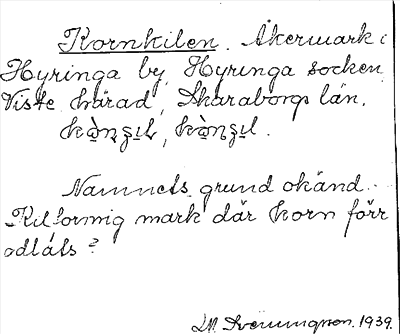 Kornkilen. Åkermark i
Hyringa by, Hyringa socken,
Viste härad, Skaraborgs län.
Namnets grund okänd.
Kilformig mark där korn förr
odlats?
1939.